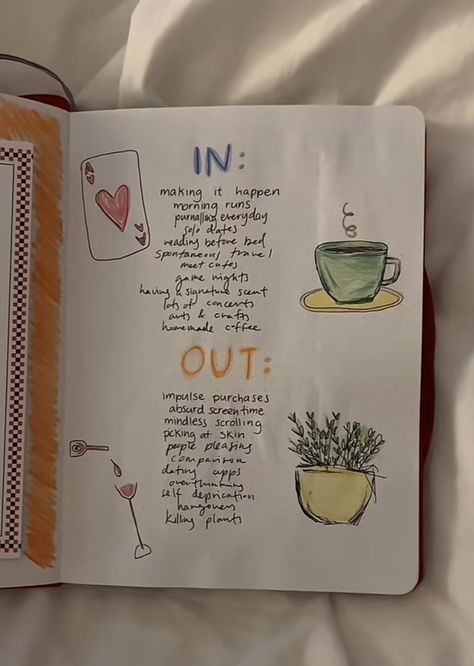 A
IN:
making it happen
morning runs
journaling everyday
solo dates
reading before bed
spontaneous travel
meet cutes
game nights
having a signature scent
lots of concerts
arts & crafts
homemade coffee
OUT:
impulse purchases
absurd screentime
mindless scrolling
picking at skin
people pleasing
comparison
dating apps
overthinking
self deprication
hangovers
killing plants